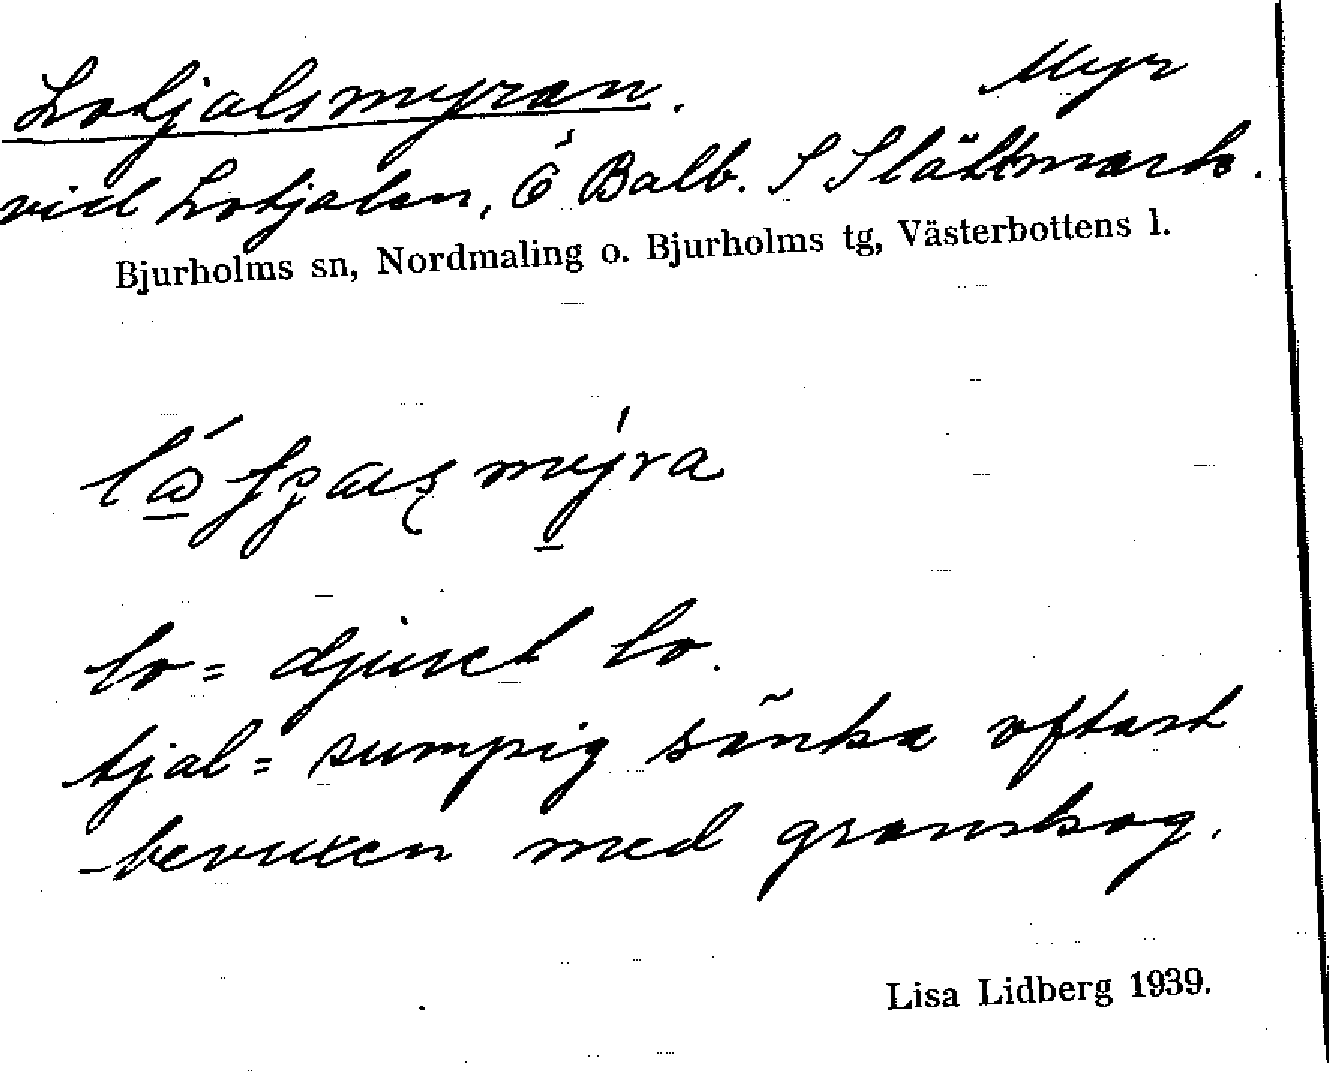 Lotjalsmyran. Myr
vid Lotjalen, Ö Balb. S Slättmark.
Bjurholms sn, Nordmaling o. Bjurholms tg, Västerbottens l.
lo = djuret lo.
tjal = sumpig sänka oftast
bevuxen med granskog.
Lisa Lidberg 1939.